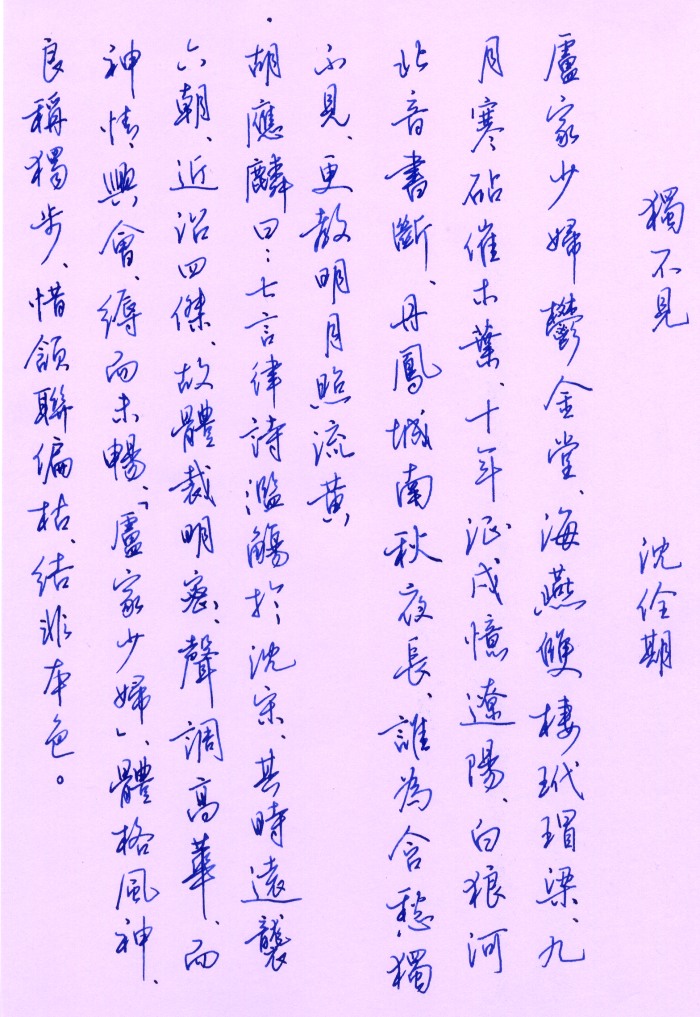 獨不見 沈佺期
盧家少婦鬱金堂、海燕雙棲玳瑁梁、九
月寒砧催木葉、十年征戍憶遼陽、白狼河
北音書斷、丹鳳城南秋夜長、誰為含愁獨
不見、更教明月照流黃
胡應麟曰：七言律詩濫觴於沈宋、其時遠襲
六朝、近沿四傑、故體裁明密、聲調高華、而
神情興會、縟而未暢、「盧家少婦」、體格風神、
良稱獨步、惜頷聯偏枯、結非本色。